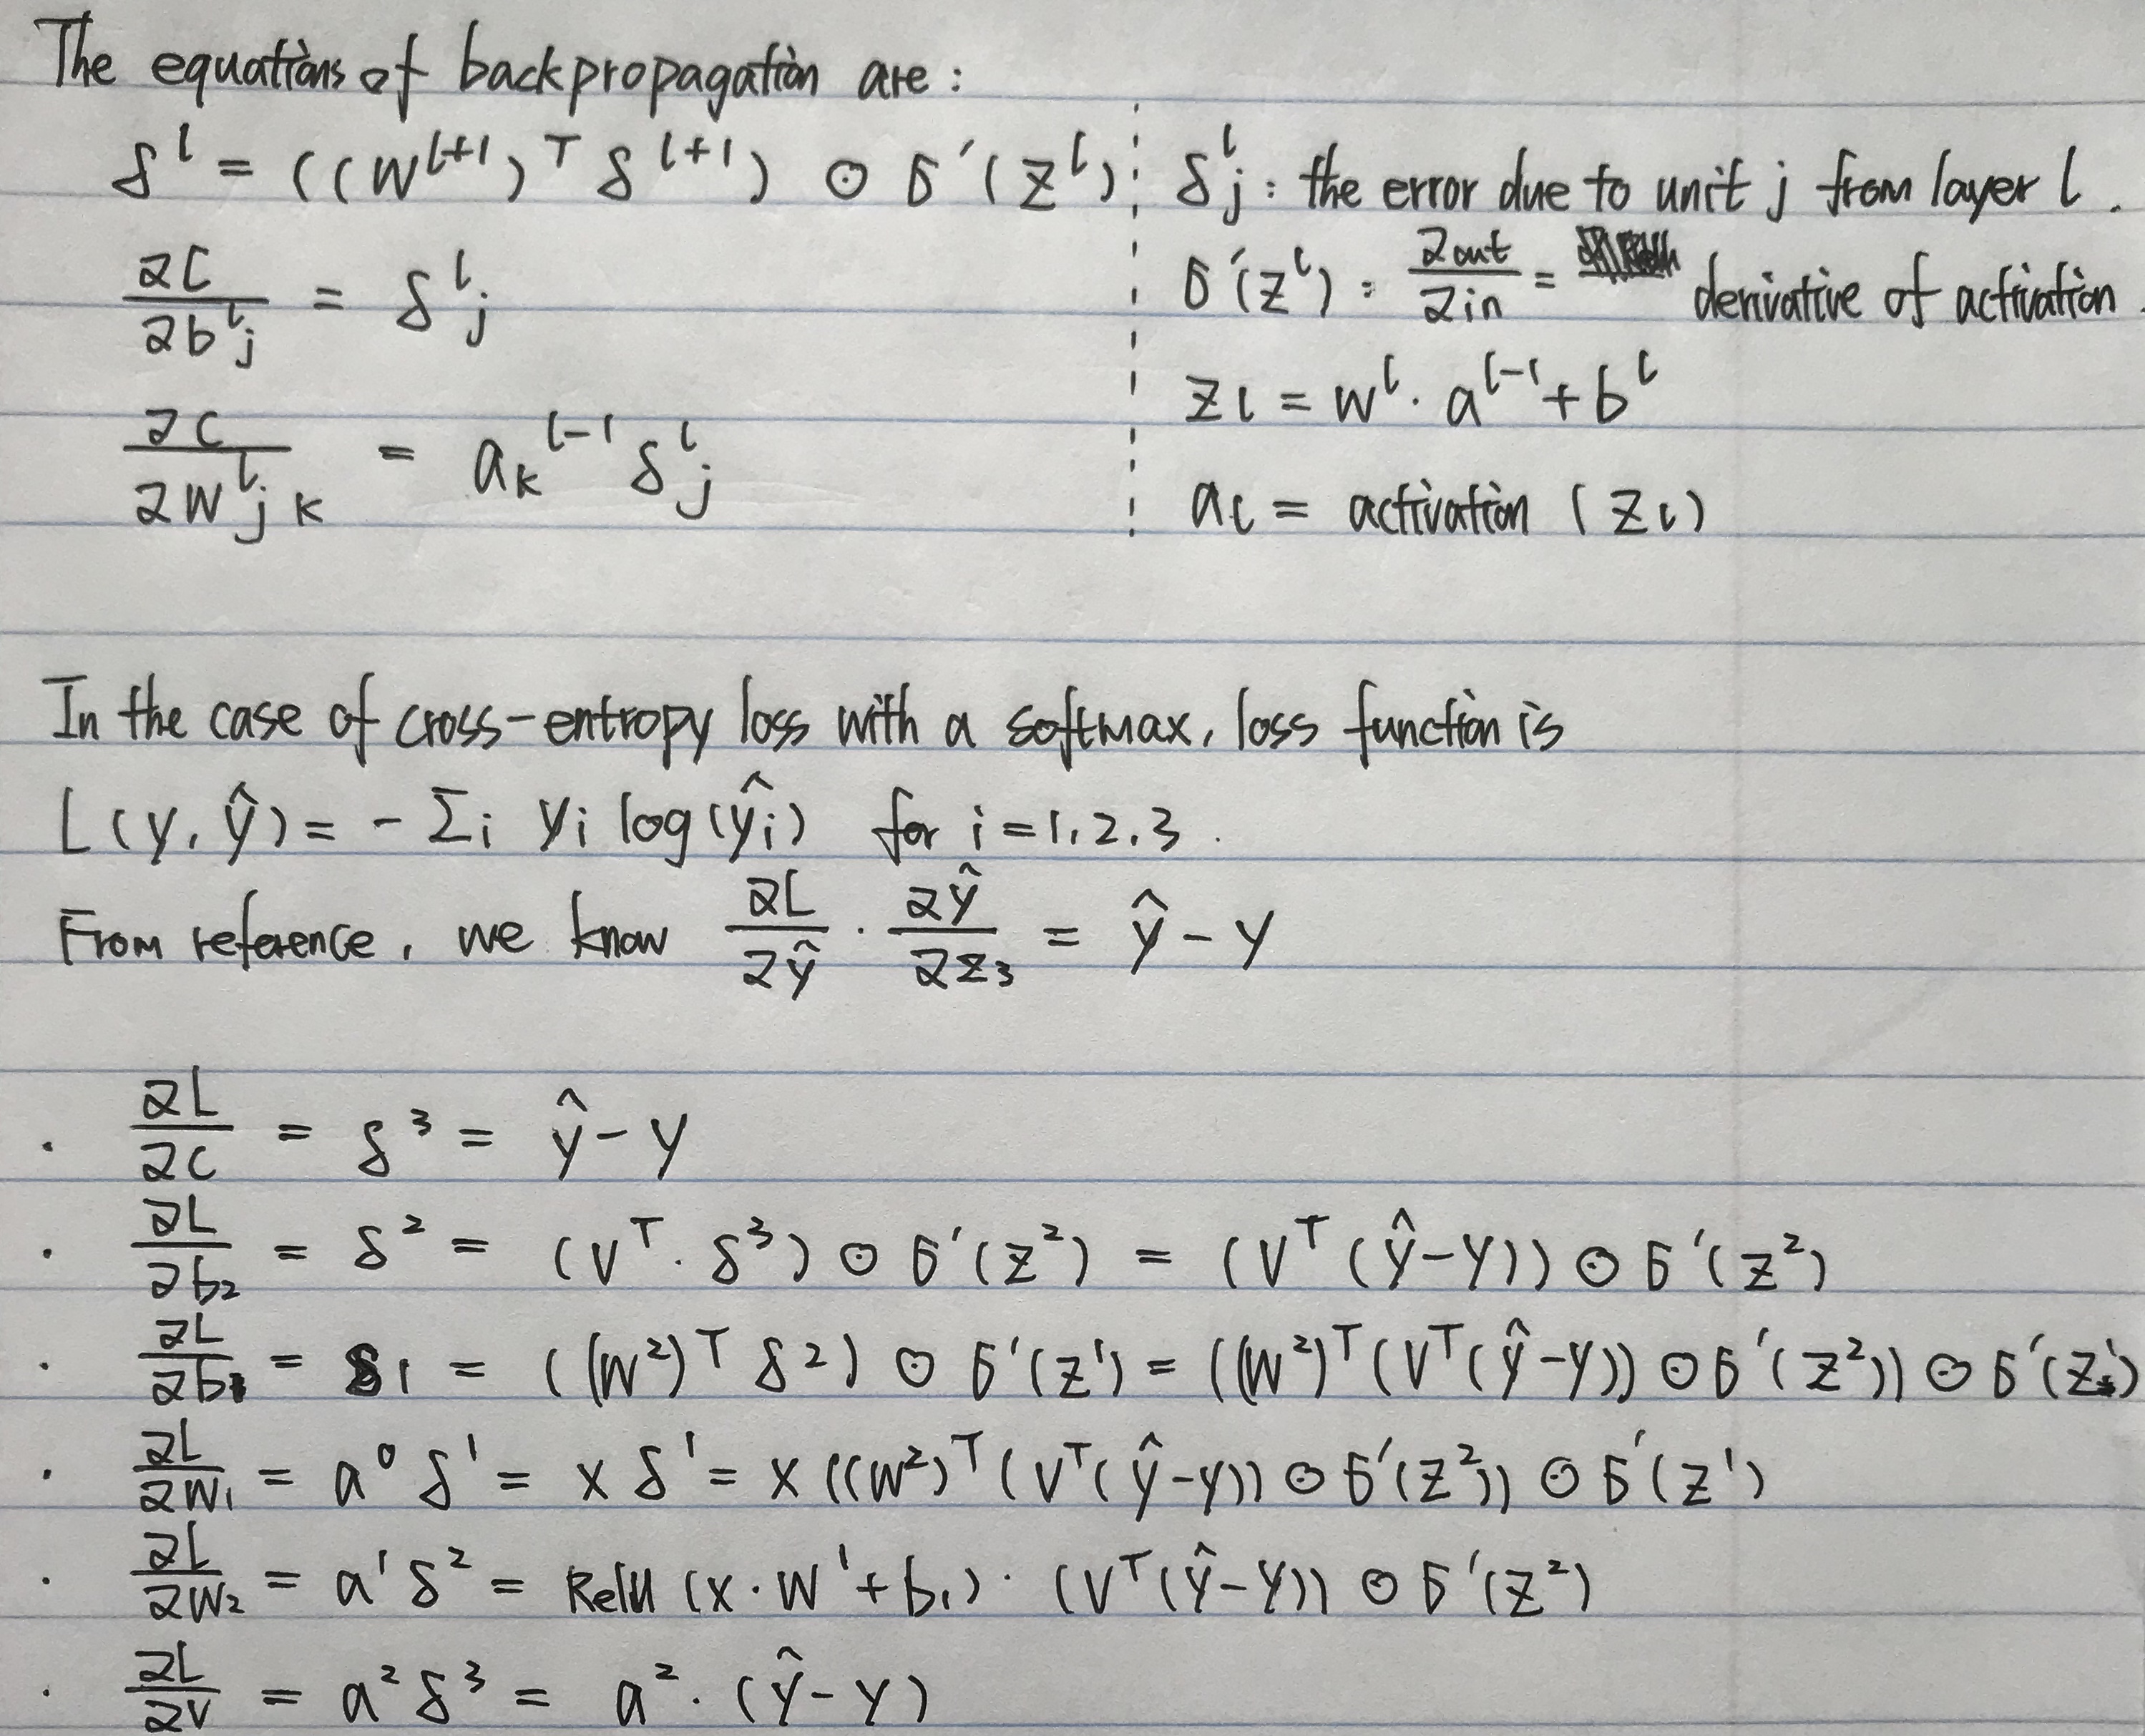 The equations of backpropagation are :
δ^l = ((W^{l+1})^T δ^{l+1}) ⊙ σ'(z^l)
∂C/∂b^l_j = δ^l_j
∂C/∂W^l_{jk} = a_k^{l-1} δ^l_j
δ^l_j : the error due to unit j from layer l .
σ'(z^l) : ∂out/∂in = derivative of activation .
z_l = w^l · a^{l-1} + b^l
a_l = activation (z_l)
In the case of cross-entropy loss with a softmax, loss function is
L(y, ŷ) = - Σ_i y_i log(ŷ_i) for i = 1, 2, 3 .
From reference, we know ∂L/∂ŷ · ∂ŷ/∂z_3 = ŷ - y
· ∂L/∂c = δ^3 = ŷ - y
· ∂L/∂b_2 = δ^2 = (V^T · δ^3) ⊙ σ'(z^2) = (V^T (ŷ-y)) ⊙ σ'(z^2)
· ∂L/∂b_1 = δ_1 = ((W^2)^T δ^2) ⊙ σ'(z^1) = ((W^2)^T (V^T(ŷ-y)) ⊙ σ'(z^2)) ⊙ σ'(z^1)
· ∂L/∂W_1 = a^0 δ^1 = x δ^1 = x ((W^2)^T (V^T(ŷ-y)) ⊙ σ'(z^2)) ⊙ σ'(z^1)
· ∂L/∂W_2 = a^1 δ^2 = Relu (x · W^1 + b_1) · (V^T(ŷ-y)) ⊙ σ'(z^2)
· ∂L/∂V = a^2 δ^3 = a^2 · (ŷ - y)